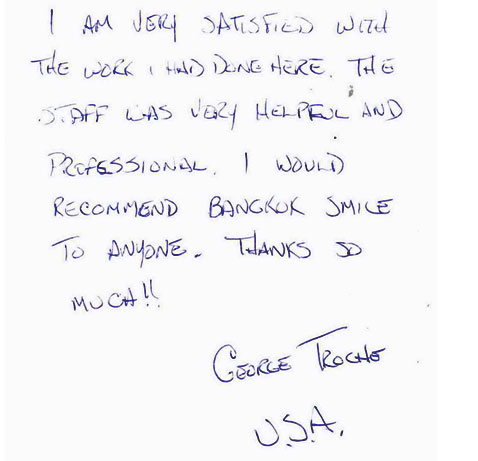 I AM VERY SATISFIED WITH
THE WORK I HAD DONE HERE. THE
STAFF WAS VERY HELPFUL AND
PROFESSIONAL. I WOULD
RECOMMEND BANGKOK SMILE
TO ANYONE. THANKS SO
MUCH!!
GEORGE TROCHE
U.S.A.